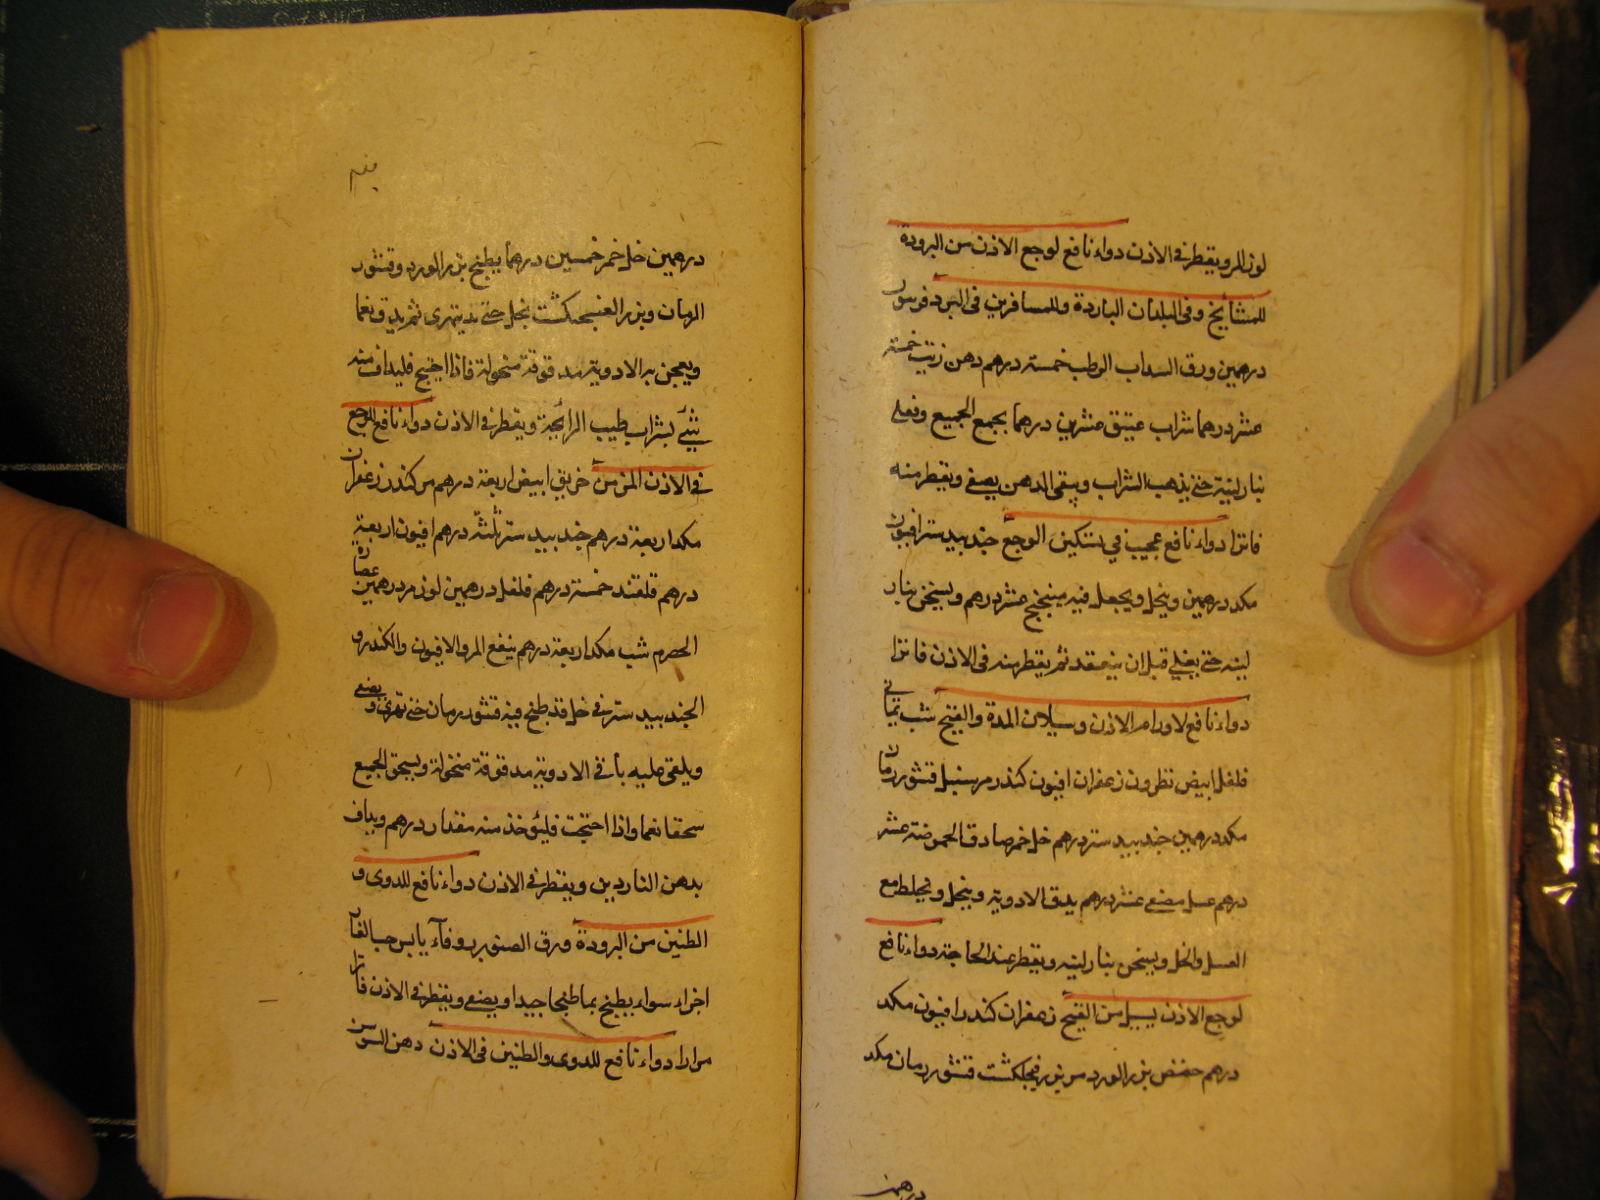 لوز المر ويقطر في الاذن دواء نافع لوجع الاذن من البرودة
للمشائخ وفى البلدان الباردة وللمسافرين فى البرد فربيون
درهمين ورق السداب الرطب خمسة درهم دهن زيت خمسة
عشر درهما شراب عتيق عشرين درهما يجمع الجميع ويغلى
بنار لينة حتى يذهب الشراب ويبقى الدهن يصفى ويقطر منه
فاترا دواء نافع عجيب في تسكين الوجع جندبيدستر افيون
مكد درهمين وينخل ويجعل فيه ميبختج عشر درهم ويسخن بنار
لينه حتى يغلي قبل ان ينعقد ثم يقطر منه فى الاذن فاترا
دواء نافع لاورام الاذن وسيلان المدة والقيح شب يمانى
فلفل ابيض نطرون زعفران افيون كندر مر سنبل قشور رمان
مكد درهمين جندبيدستر درهم خل خمر صادق الحموضة عشر
درهم عسل مصفى عشر درهم يدق الادوية وينخل ويخلط مع
العسل والخل ويسخن بنار لينه ويقطر عند الحاجة دواء نافع
لوجع الاذن يسيل من القيح زعفران كندر افيون مكد
درهم حضض بزر الورد مر بزر فنجلكشت قشور رمان مكد
درهمين
درهمين خل خمر خمسين درهما يطبخ بزر الورد وقشور
الرمان وبزر الفنجنكشت بخل حتى يتهرى ثم يدق نعما
ويعجن به الادوية مدقوقة منخولة فاذا احتيج فليداف منه
بشئ بشراب طيب الرائحة ويقطر في الاذن دواء نافع للوجع
في الاذن المزمن خربق ابيض اربعة درهم مر كندر زعفران
مكد اربعة درهم جندبيدستر ثلثة درهم افيون اربعة
درهم قلقند خمسة درهم فلفل درهمين لوز مر درهمين عصارة
الحصرم شب مكد اربعة درهم ينقع المر والافيون والكندر و
الجندبيدستر في خل قد طبخ فيه قشور رمان حتى تهرى و يصفى
ويلقى عليه باقي الادوية مدقوقة منخولة ويسحق الجميع
سحقا نعما واذا احتجت فليؤخذ منه مقدار درهم ويداف
بدهن الناردين ويقطر في الاذن دواء نافع للدوى و
الطنين من البرودة ورق الصنوبر وفاّء يابس حب الغار
اجزاء سواء يطبخ بماء طبخا جيدا ويصفى ويقطر في الاذن فاترا
مرارا دواء نافع للدوى والطنين فى الاذن دهن السوسن